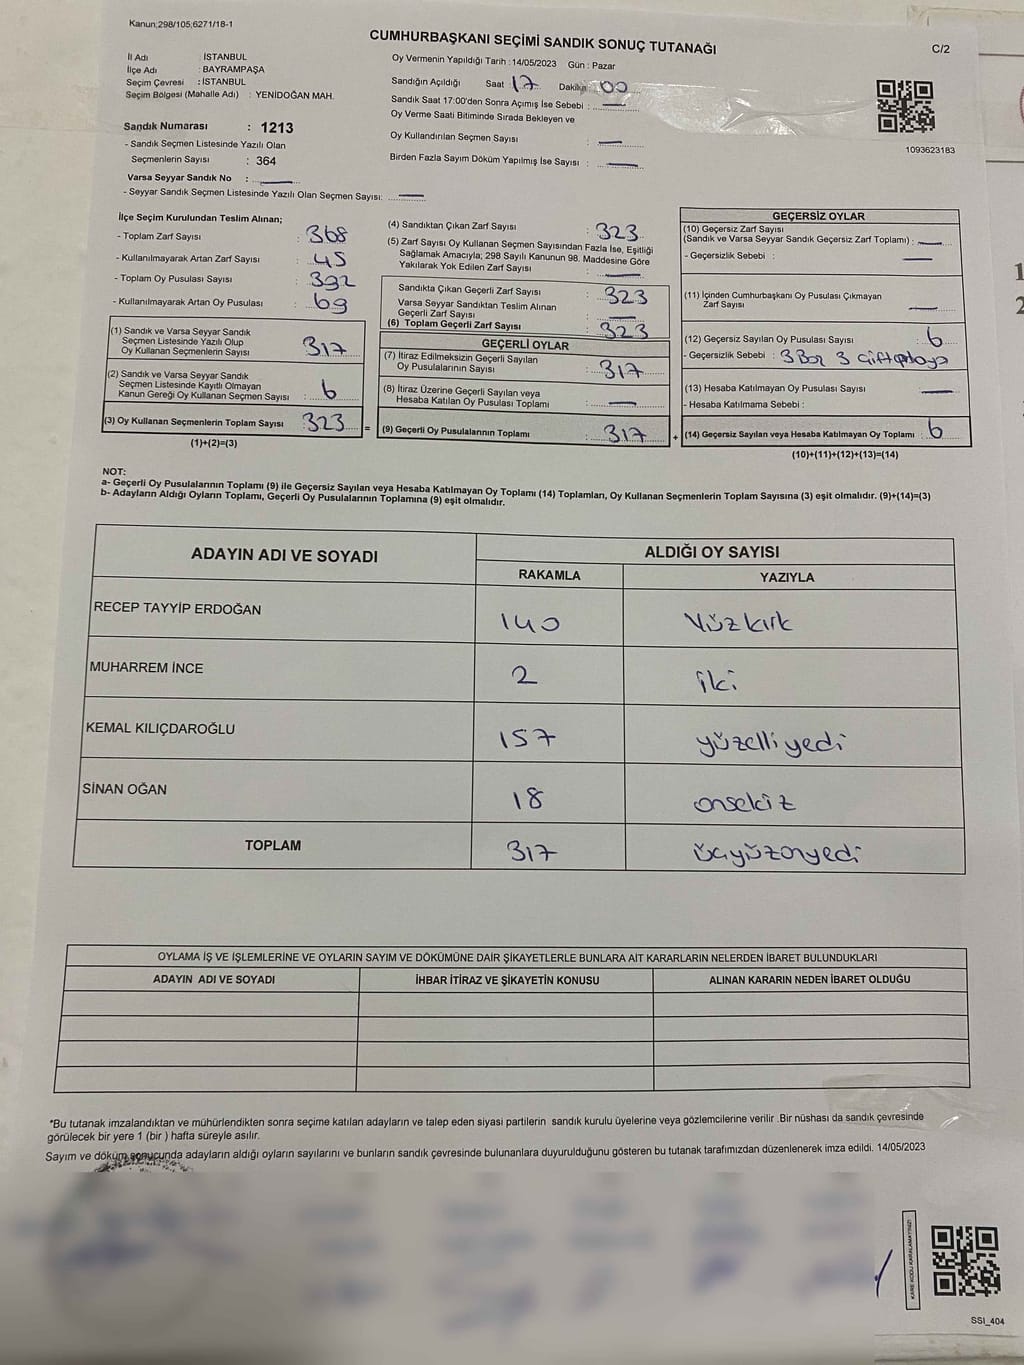 Kanun;298/105;6271/18-1
CUMHURBAŞKANI SEÇİMİ SANDIK SONUÇ TUTANAĞI
C/2
İl Adı : İSTANBUL
İlçe Adı : BAYRAMPAŞA
Seçim Çevresi : İSTANBUL
Seçim Bölgesi (Mahalle Adı) : YENİDOĞAN MAH.
Sandık Numarası : 1213
- Sandık Seçmen Listesinde Yazılı Olan
Seçmenlerin Sayısı : 364
Varsa Seyyar Sandık No : —
- Seyyar Sandık Seçmen Listesinde Yazılı Olan Seçmen Sayısı: —
Oy Vermenin Yapıldığı Tarih : 14/05/2023 Gün : Pazar
Sandığın Açıldığı Saat 17 Dakika 00
Sandık Saat 17:00'den Sonra Açımış İse Sebebi : —
Oy Verme Saati Bitiminde Sırada Bekleyen ve
Oy Kullandırılan Seçmen Sayısı : —
Birden Fazla Sayım Döküm Yapılmış İse Sayısı : —
1093623183
İlçe Seçim Kurulundan Teslim Alınan;
- Toplam Zarf Sayısı : 368
- Kullanılmayarak Artan Zarf Sayısı : 45
- Toplam Oy Pusulası Sayısı : 392
- Kullanılmayarak Artan Oy Pusulası : 69
(1) Sandık ve Varsa Seyyar Sandık
Seçmen Listesinde Yazılı Olup
Oy Kullanan Seçmenlerin Sayısı 317
(2) Sandık ve Varsa Seyyar Sandık
Seçmen Listesinde Kayıtlı Olmayan
Kanun Gereği Oy Kullanan Seçmen Sayısı : 6
(3) Oy Kullanan Seçmenlerin Toplam Sayısı : 323
(1)+(2)=(3)
=
(4) Sandıktan Çıkan Zarf Sayısı : 323
(5) Zarf Sayısı Oy Kullanan Seçmen Sayısından Fazla İse, Eşitliği
Sağlamak Amacıyla; 298 Sayılı Kanunun 98. Maddesine Göre
Yakılarak Yok Edilen Zarf Sayısı : —
Sandıkta Çıkan Geçerli Zarf Sayısı : 323
Varsa Seyyar Sandıktan Teslim Alınan
Geçerli Zarf Sayısı : —
(6) Toplam Geçerli Zarf Sayısı : 323
GEÇERLİ OYLAR
(7) İtiraz Edilmeksizin Geçerli Sayılan
Oy Pusulalarının Sayısı : 317
(8) İtiraz Üzerine Geçerli Sayılan veya
Hesaba Katılan Oy Pusulası Toplamı : —
(9) Geçerli Oy Pusulalarının Toplamı : 317
+
GEÇERSİZ OYLAR
(10) Geçersiz Zarf Sayısı
(Sandık ve Varsa Seyyar Sandık Geçersiz Zarf Toplamı) : —
- Geçersizlik Sebebi : —
(11) İçinden Cumhurbaşkanı Oy Pusulası Çıkmayan
Zarf Sayısı : —
(12) Geçersiz Sayılan Oy Pusulası Sayısı : 6
- Geçersizlik Sebebi : 3 Boş 3
(13) Hesaba Katılmayan Oy Pusulası Sayısı : —
- Hesaba Katılmama Sebebi :
(14) Geçersiz Sayılan veya Hesaba Katılmayan Oy Toplamı : 6
(10)+(11)+(12)+(13)=(14)
NOT:
a- Geçerli Oy Pusulalarının Toplamı (9) ile Geçersiz Sayılan veya Hesaba Katılmayan Oy Toplamı (14) Toplamları, Oy Kullanan Seçmenlerin Toplam Sayısına (3) eşit olmalıdır. (9)+(14)=(3)
b- Adayların Aldığı Oyların Toplamı, Geçerli Oy Pusulalarının Toplamına (9) eşit olmalıdır.
ADAYIN ADI VE SOYADI
ALDIĞI OY SAYISI
RAKAMLA YAZIYLA
RECEP TAYYİP ERDOĞAN 140 Yüzkırk
MUHARREM İNCE 2 iki
KEMAL KILIÇDAROĞLU 157 yüzelliyedi
SİNAN OĞAN 18 onsekiz
TOPLAM 317 üçyüzonyedi
OYLAMA İŞ VE İŞLEMLERİNE VE OYLARIN SAYIM VE DÖKÜMÜNE DAİR ŞİKAYETLERLE BUNLARA AİT KARARLARIN NELERDEN İBARET BULUNDUKLARI
ADAYIN ADI VE SOYADI İHBAR İTİRAZ VE ŞİKAYETİN KONUSU ALINAN KARARIN NEDEN İBARET OLDUĞU
*Bu tutanak imzalandıktan ve mühürlendikten sonra seçime katılan adayların ve talep eden siyasi partilerin sandık kurulu üyelerine veya gözlemcilerine verilir .Bir nüshası da sandık çevresinde
görülecek bir yere 1 (bir ) hafta süreyle asılır.
Sayım ve döküm sonucunda adayların aldığı oyların sayılarını ve bunların sandık çevresinde bulunanlara duyurulduğunu gösteren bu tutanak tarafımızdan düzenlenerek imza edildi. 14/05/2023
KARE KODU KARALAMAYINIZ!
SSI_404